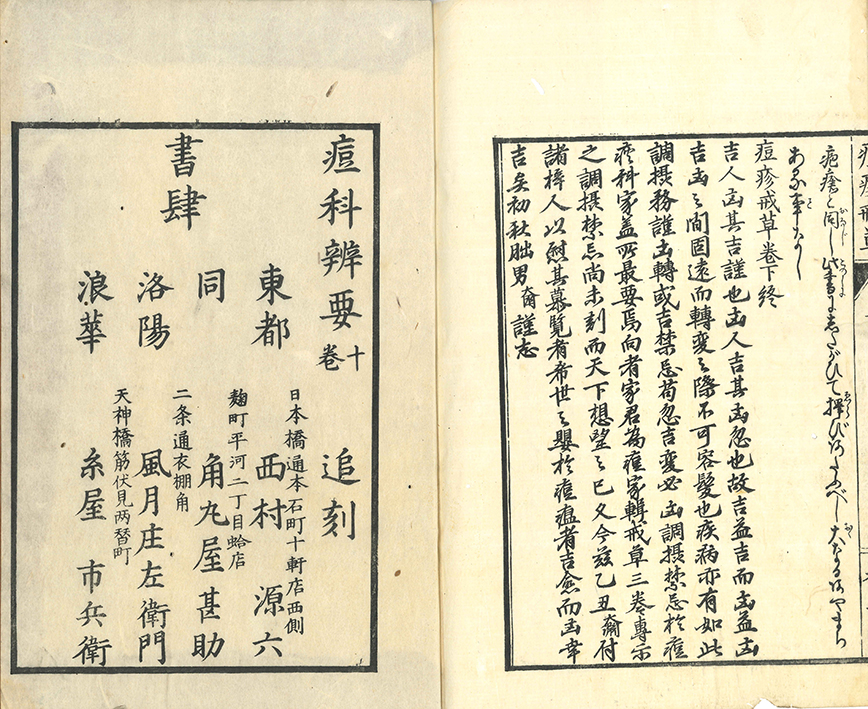 疱瘡と同じ此書にしたがひて擇びあたふべし大なるあやまち
ある事なし
痘疹戒草卷下終
吉人凶其吉謹也凶人吉其凶忽也故吉益吉而凶益凶
吉凶之間固遠而轉変之際不可容髮也疾病亦有如此
調摂務謹凶轉或吉禁忌苟忽吉変必凶調摂禁忌於痘
疹科家盖所最要焉向者家君為痘家輯戒草三卷専示
之調摂禁忌尚未刻而天下想望之已久今茲乙丑奫付
諸梓人以慰其慕覧者希世之嬰於痘瘟者吉愈而凶幸
吉矣初秋朏男奫謹志
痘科辨要 十卷 追刻
書肆
東都 日本橋通本石町十軒店西側 西村 源六
同 麹町平河二丁目蛤店 角丸屋甚助
洛陽 二条通衣棚角 風月庄左衛門
浪華 天神橋筋伏見両替町 糸屋 市兵衛